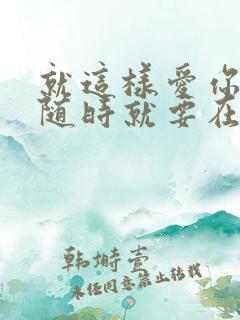 就這樣愛你
随時就要在
韩塒壹
未经同意禁止转载